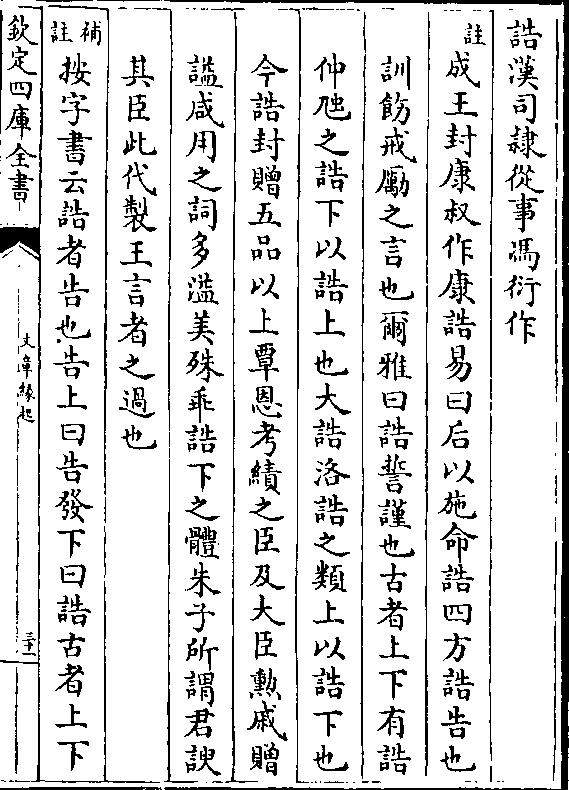 誥漢司隷從事馮衍作
註成王封康叔作康誥易曰后以施命誥四方誥告也
訓飭戒勵之言也爾雅曰誥誓謹也古者上下有誥
仲虺之誥下以誥上也大誥洛誥之類上以誥下也
今誥封贈五品以上覃恩考績之臣及大臣勲戚贈
諡咸用之詞多溢美殊乖誥下之體朱子所謂君諛
其臣此代製王言者之過也
補註按字書云誥者告也告上曰告發下曰誥古者上下
欽定四庫全書
文章緣起